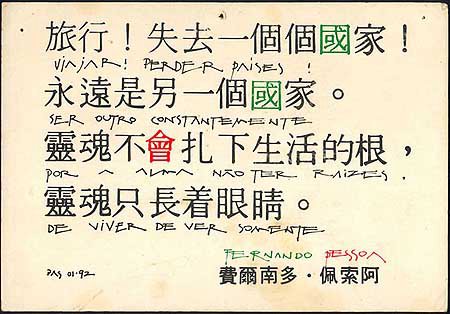 旅行！失去一個個國家！
VIAJAR! PERDER PAÍSES !
永遠是另一個國家。
SER OUTRO CONSTANTEMENTE
靈魂不會扎下生活的根，
POR A ALMA NÃO TER RAÍZES.
靈魂只長着眼睛。
DE VIVER DE VER SOMENTE
FERNANDO PESSOA
費爾南多・佩索阿
01.92